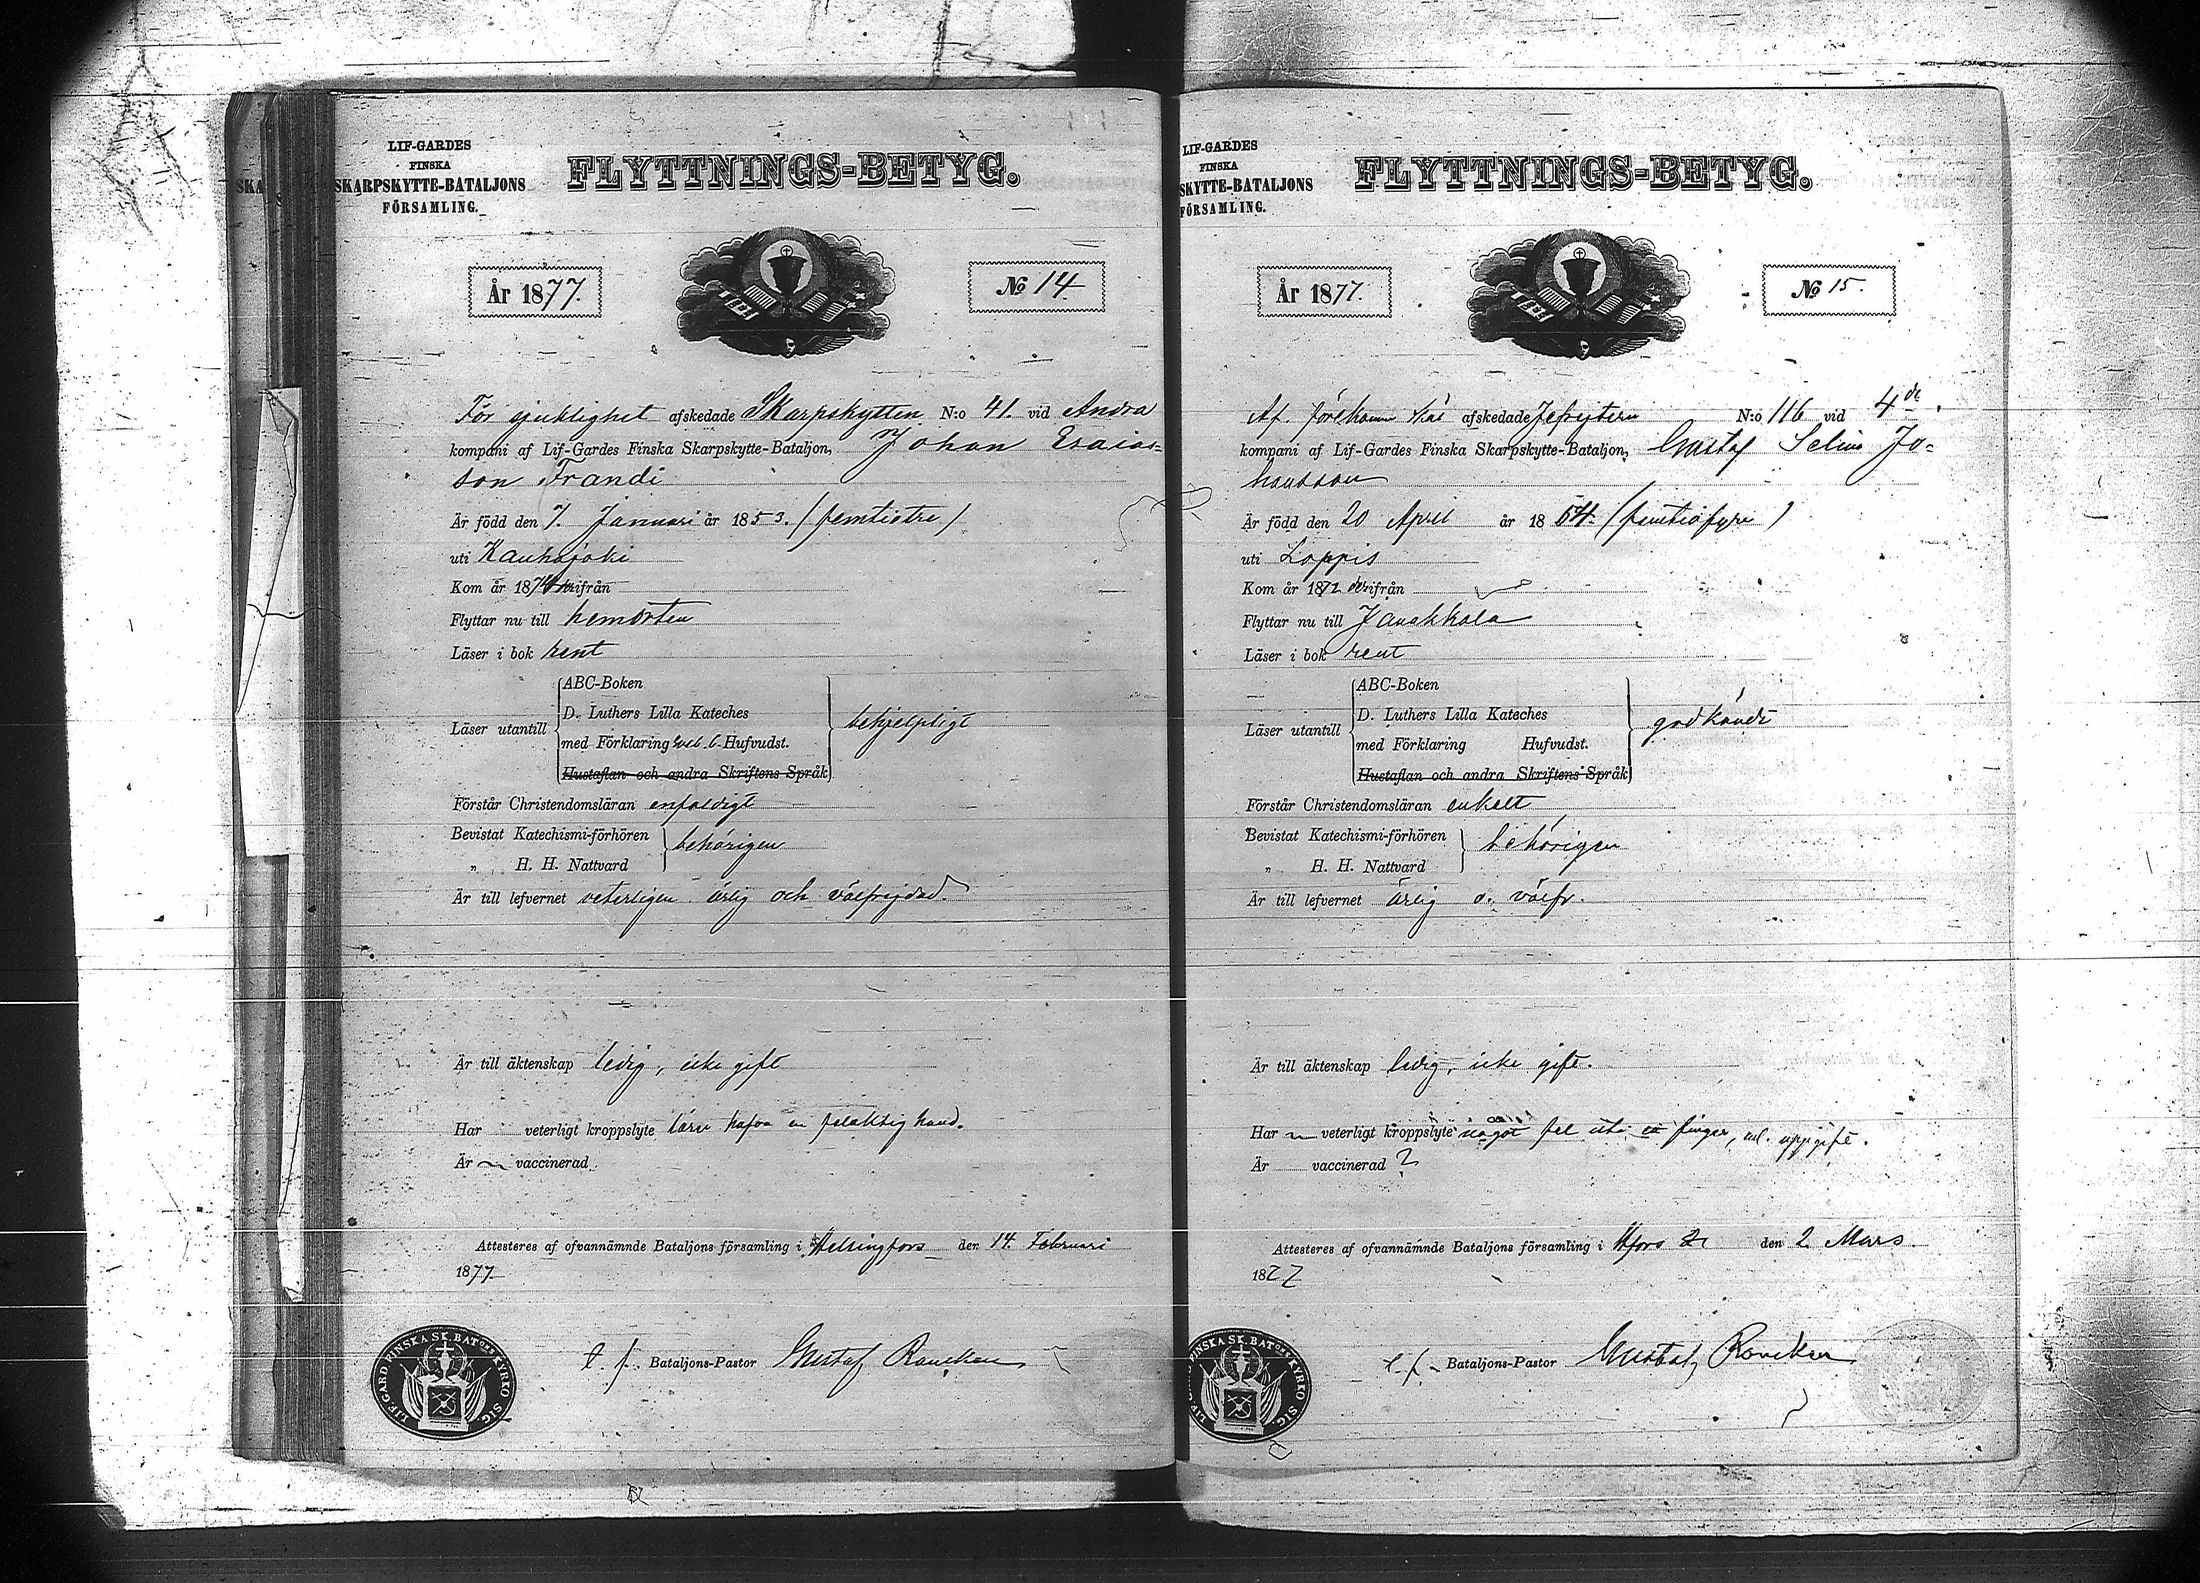 LIF-GARDES
FINSKA
SKARPSKYTTE-BATALJONS
FÖRSAMLING.
FLYTTNINGS-BETYG.
År 1877.
No 14.
För sjuklighet afskedade Skarpskytten N:o 41. vid Andra
kompani af Lif-Gardes Finska Skarpskytte-Bataljon, Johan Esaias-
son Frandi
Är född den 7. Januari år 1853. (femtiotre)
uti Kauhajoki
Kom år 1874 ifrån
Flyttar nu till hemorten
Läser i bok rent
Läser utantill
ABC-Boken
D. Luthers Lilla Kateches
med Förklaring Hufvudst.
Hustaflan och andra Skriftens Språk
behjelpligt
Förstår Christendomsläran enfaldigt
Bevistat Katechismi-förhören
„ H. H. Nattvard
behörigen
Är till lefvernet veterligen ärlig och välfrejdad.
Är till äktenskap ledig, icke gift
Har veterligt kroppslyte lärer hafva en felaktig hand.
Är vaccinerad
Attesteres af ofvannämnde Bataljons församling i Helsingfors den 14. Februari
1877.
t. f. Bataljons-Pastor Gustaf
LIF-GARD FINSKA SK. BAT:ONS KYRKO SIG.
LIF-GARDES
FINSKA
SKYTTE-BATALJONS
FÖRSAMLING.
FLYTTNINGS-BETYG.
År 1877.
No 15.
Af förekomm skäl afskedade Jefrejtern N:o 116 vid 4de
kompani af Lif-Gardes Finska Skarpskytte-Bataljon, Gustaf Selim Jo-
hansson
Är född den 20 April år 1854. (femtiofyra)
uti Loppis
Kom år 1872 ifrån
Flyttar nu till Janakkala
Läser i bok rent
Läser utantill
ABC-Boken
D. Luthers Lilla Kateches
med Förklaring Hufvudst.
Hustaflan och andra Skriftens Språk
godkändt
Förstår Christendomsläran enkelt
Bevistat Katechismi-förhören
„ H. H. Nattvard
behörigen
Är till lefvernet ärlig o. välfr.
Är till äktenskap ledig, icke gift.
Har veterligt kroppslyte något fel uti en finger, enl. uppgift.
Är vaccinerad ?
Attesteres af ofvannämnde Bataljons församling i Hfors den 2 Mars.
1877
t. f. Bataljons-Pastor Gustaf